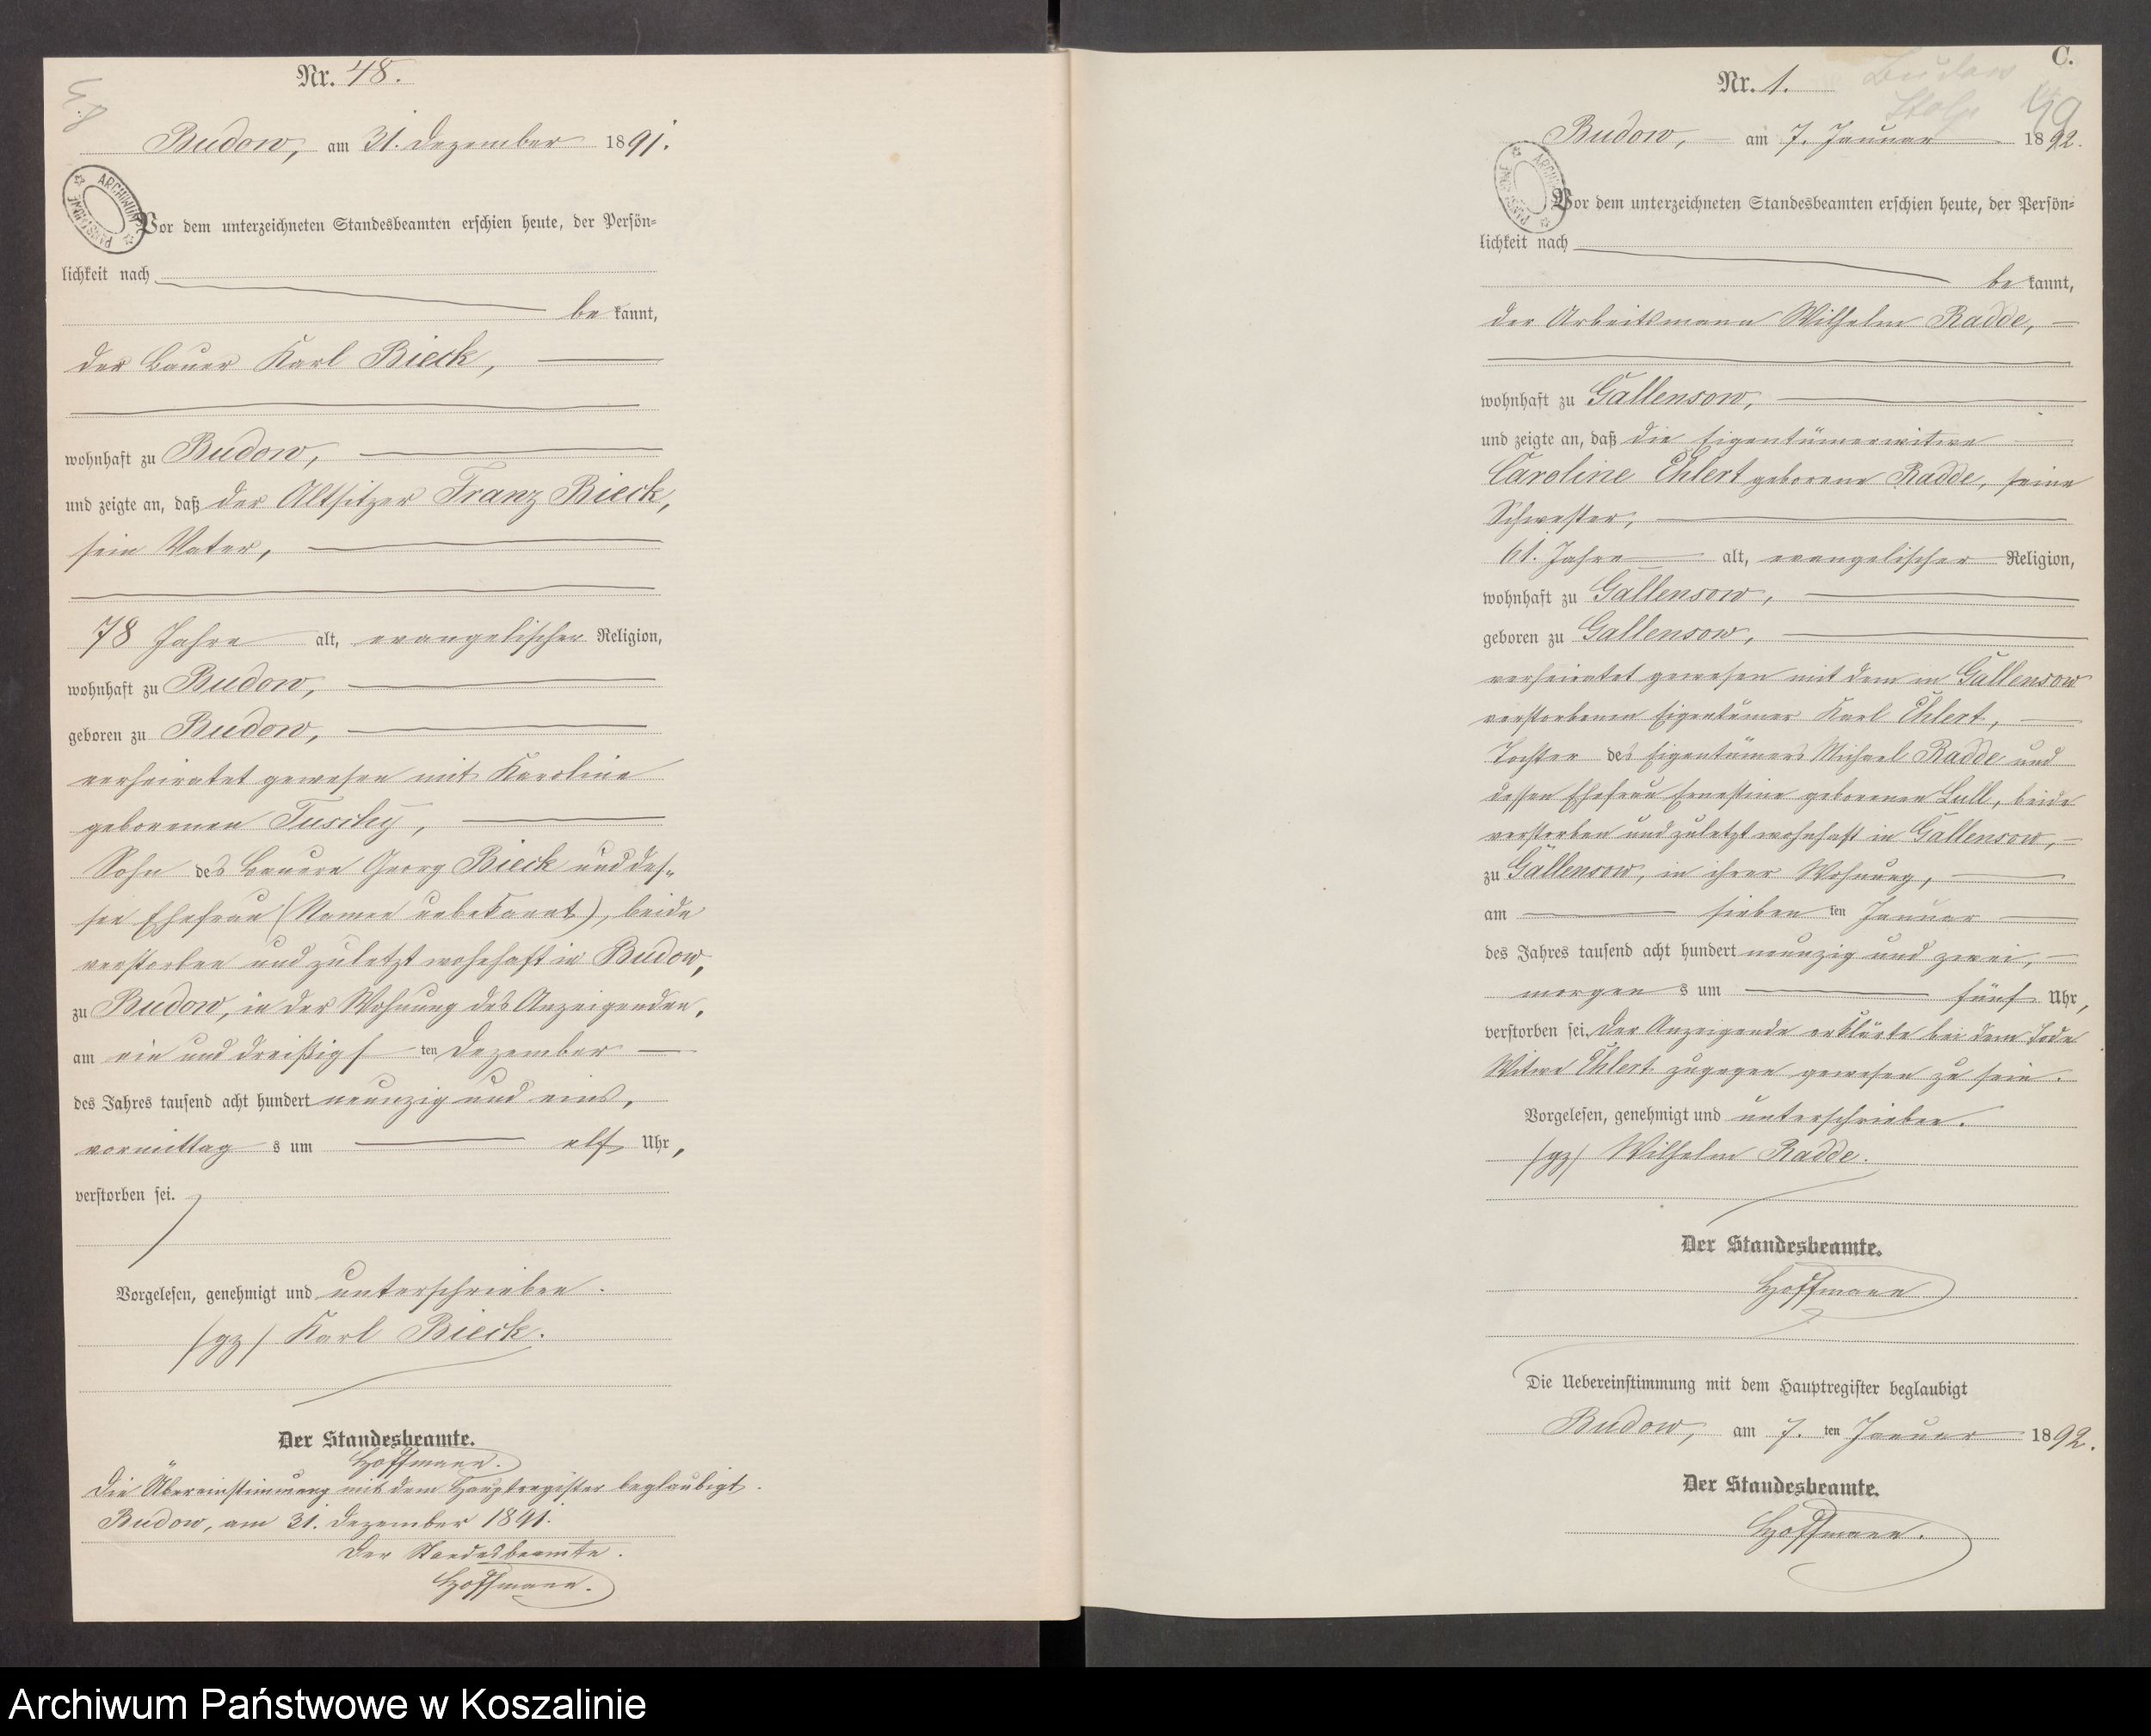 Nr. 48.
Budow, am 31. Dezember 1891.
ARCHIWUM PAŃSTWOWE
Vor dem unterzeichneten Standesbeamten erschien heute, der Persön=
lichkeit nach
be kannt,
der Bauer Karl Bieck,
wohnhaft zu Budow,
und zeigte an, daß der Altsitzer Franz Bieck,
sein Vater,
78 Jahre alt, evangelischer Religion,
wohnhaft zu Budow,
geboren zu Budow,
verheiratet gewesen mit Karoline
geborenen Tuschy,
Sohn des Bauern Georg Bieck und des-
sen Ehefrau (Namen unbekannt), beide
verstorben und zuletzt wohnhaft in Budow,
zu Budow, in der Wohnung des Anzeigenden,
am ein und dreißigs ten Dezember
des Jahres tausend acht hundert neunzig und eins,
vormittag s um elf Uhr,
verstorben sei.
Vorgelesen, genehmigt und unterschrieben.
/gz/ Karl Bieck.
Der Standesbeamte.
Hoffmann.
Die Übereinstimmung mit dem Hauptregister beglaubigt.
Budow, am 31. Dezember 1891.
Der Standesbeamte.
Hoffmann.
C.
Nr. 1.
Budow
Stolp
49
Budow, am 7. Januar 1892.
ARCHIWUM PAŃSTWOWE
Vor dem unterzeichneten Standesbeamten erschien heute, der Persön=
lichkeit nach
be kannt,
der Arbeitsmann Wilhelm Radde,
wohnhaft zu Gallensow,
und zeigte an, daß die Eigentümerwitwe
Caroline Ehlert geborene Radde, seine
Schwester,
61. Jahre alt, evangelischer Religion,
wohnhaft zu Gallensow,
geboren zu Gallensow,
verheiratet gewesen mit dem in Gallensow
verstorbenen Eigentümer Karl Ehlert,
Tochter des Eigentümers Michael Radde und
dessen Ehefrau Ernestine geborenen Lull, beide
verstorben und zuletzt wohnhaft in Gallensow,
zu Gallensow, in ihrer Wohnung,
am sieben ten Januar
des Jahres tausend acht hundert neunzig und zwei,
morgen s um fünf Uhr,
verstorben sei. Der Anzeigende erklärte bei dem Tode
Witwe Ehlert zugegen gewesen zu sein.
Vorgelesen, genehmigt und unterschrieben.
/gz/ Wilhelm Radde.
Der Standesbeamte.
Hoffmann
Die Uebereinstimmung mit dem Hauptregister beglaubigt
Budow, am 7. ten Januar 1892.
Der Standesbeamte.
Hoffmann.
Archiwum Państwowe w Koszalinie